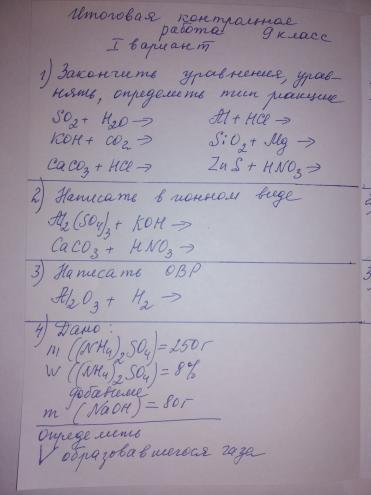 Итоговая контрольная
работа 9 класс
I вариант
1) Закончить уравнения, урав-
нять, определить тип реакции
SO2 + H2O → Al + HCl →
KOH + CO2 → SiO2 + Mg →
CaCO3 + HCl → ZnS + HNO3 →
2) Написать в ионном виде
Al2(SO4)3 + KOH →
CaCO3 + HNO3 →
3) Написать ОВР
Al2O3 + H2 →
4) Дано:
m ((NH4)2SO4) = 250г
W ((NH4)2SO4) = 8%
m (NaOH) = 80г
Определить
V образовавшегося газа